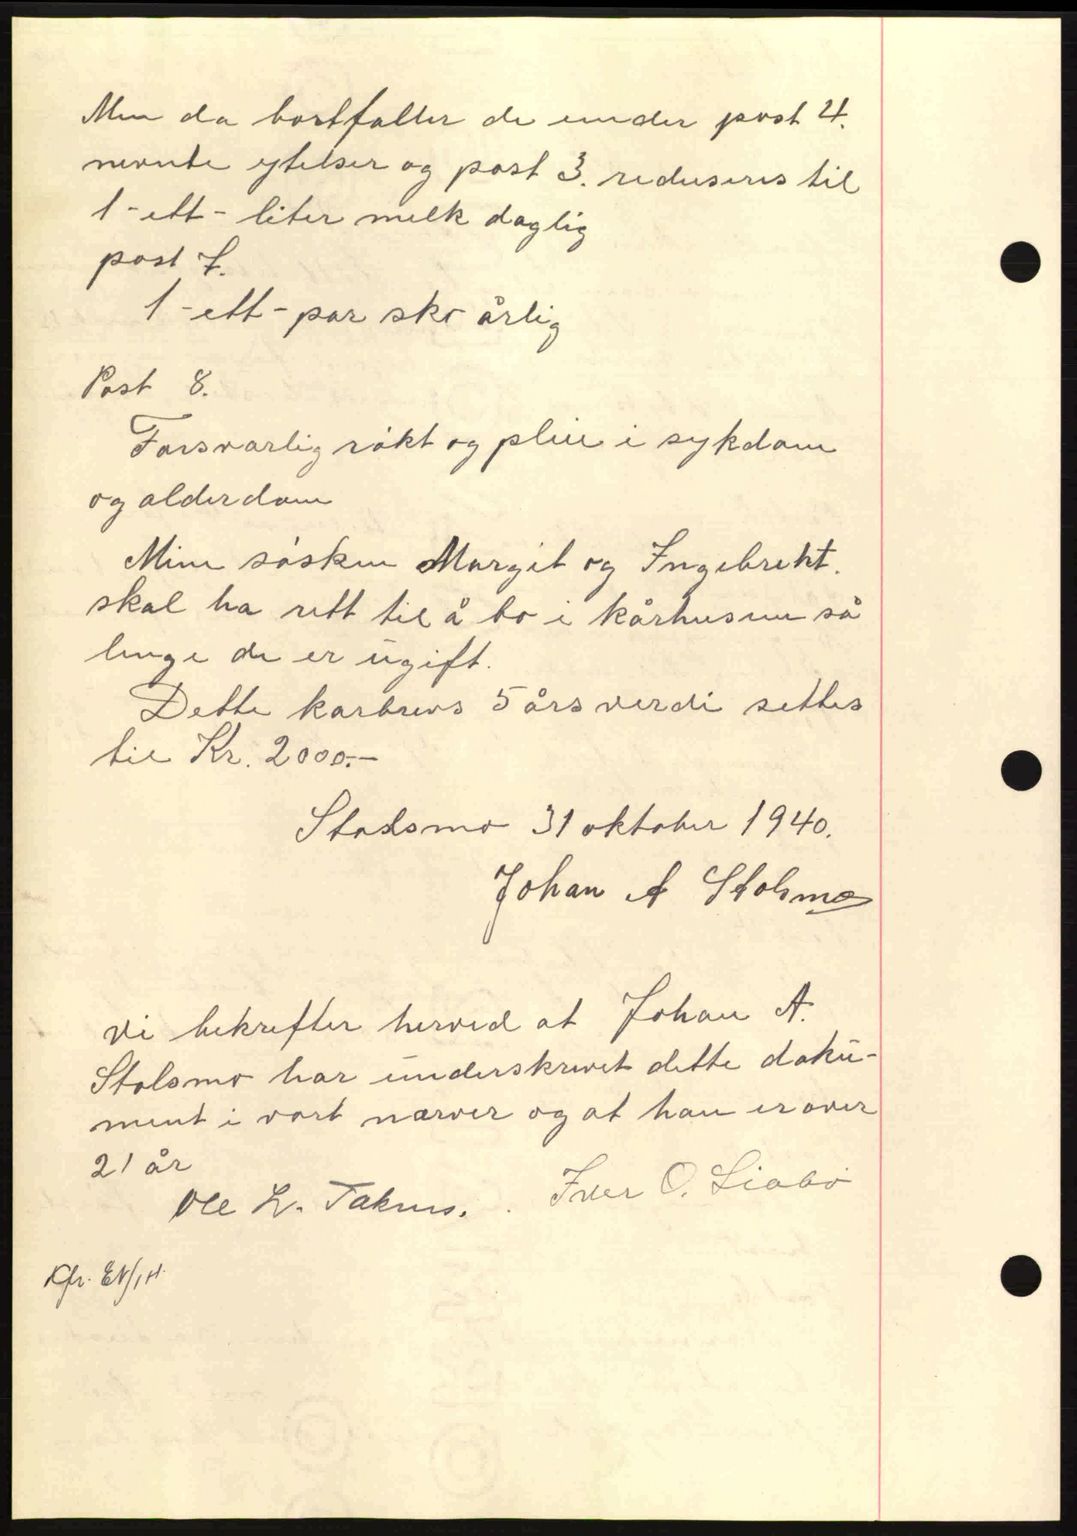 Men da bortfaller de under post 4.
nevnte ytelser og post 3. reduseres til
1-ett- liter melk daglig
post 7.
1-ett-par sko årlig
Post 8.
Forsvarlig røkt og pleie i sykdom
og alderdom
Mine søsken Margit og Ingebrekt.
skal ha rett til å bo i kårhusene så
lenge de er ugift.
Dette karbrevs 5 års verdi settes
til Kr. 2000.-
31 oktober 1940.
Johan A Stolsmo
Vi bekrefter herved at Johan A.
Stolsmo har underskrevet dette doku-
ment i vort nærver og at han er over
21 år
Ole Iver O. Liabø
Kfr.